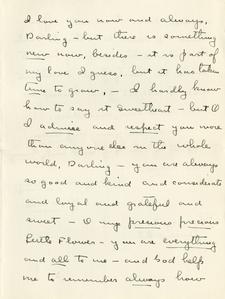 I love you now and always,
Darling - but there is something
new now, besides - it is part of
my love I guess, but it has taken
time to grow, - I hardly know
how to say it sweetheart - but O
I admire and respect you more
than anyone else in the whole
world, Darling - you are always
so good and kind and considerate
and loyal and grateful and
sweet - O my precious precious
Little Flower - you are everything
and all to me - and God help
me to remember always how